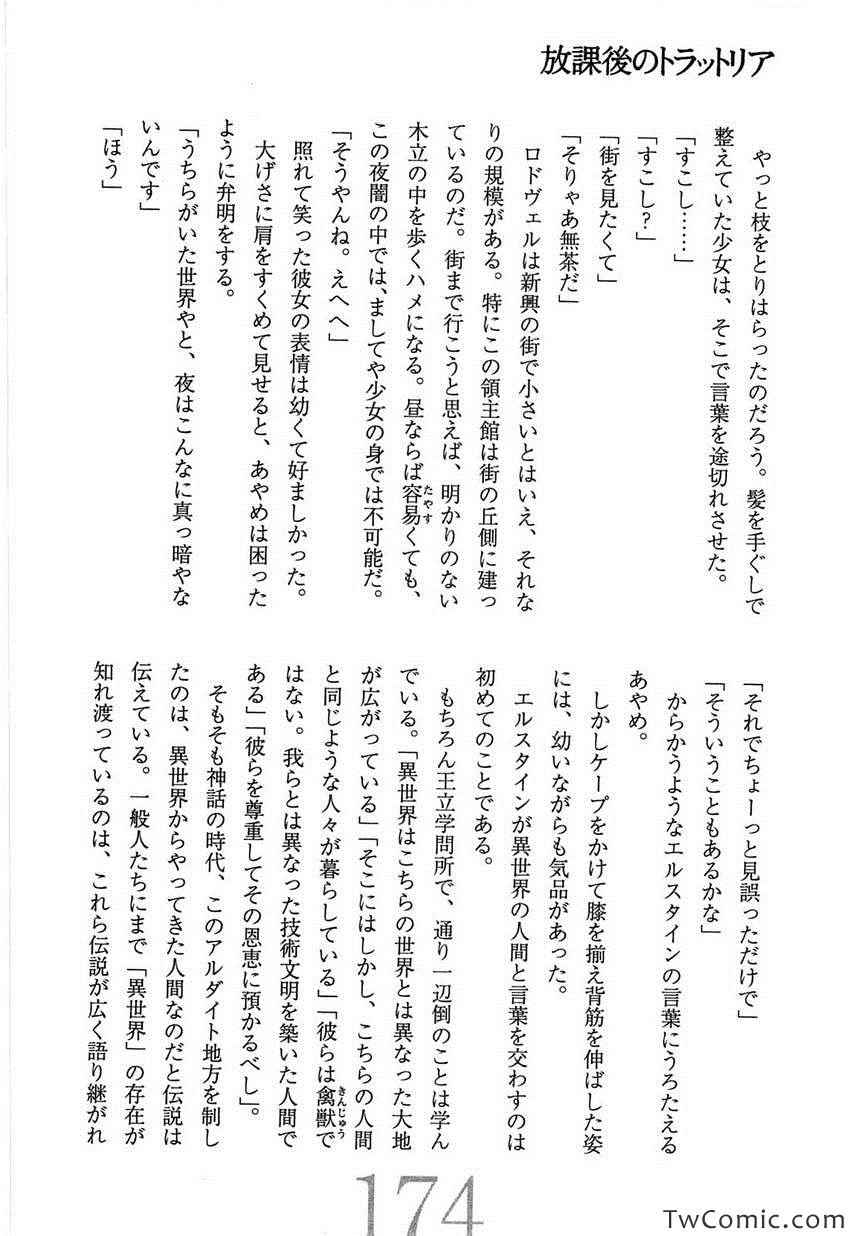 放課後のトラットリア
　やっと枝をとりはらったのだろう。髪を手ぐしで
整えていた少女は、そこで言葉を途切れさせた。
「すこし……」
「すこし？」
「街を見たくて」
「そりゃあ無茶だ」
　ロドヴェルは新興の街で小さいとはいえ、それな
りの規模がある。特にこの領主館は街の丘側に建っ
ているのだ。街まで行こうと思えば、明かりのない
木立の中を歩くハメになる。昼ならば容易くても、
この夜闇の中では、ましてや少女の身では不可能だ。
「そうやんね。えへへ」
　照れて笑った彼女の表情は幼くて好ましかった。
　大げさに肩をすくめて見せると、あやめは困った
ように弁明をする。
「うちらがいた世界やと、夜はこんなに真っ暗やな
いんです」
「ほう」
「それでちょーっと見誤っただけで」
「そういうこともあるかな」
　からかうようなエルスタインの言葉にうろたえる
あやめ。
　しかしケープをかけて膝を揃え背筋を伸ばした姿
には、幼いながらも気品があった。
　エルスタインが異世界の人間と言葉を交わすのは
初めてのことである。
　もちろん王立学問所で、通り一辺倒のことは学ん
でいる。「異世界はこちらの世界とは異なった大地
が広がっている」「そこにはしかし、こちらの人間
と同じような人々が暮らしている」「彼らは禽獣で
はない。我らとは異なった技術文明を築いた人間で
ある」「彼らを尊重してその恩恵に預かるべし」。
　そもそも神話の時代、このアルダイト地方を制し
たのは、異世界からやってきた人間なのだと伝説は
伝えている。一般人たちにまで「異世界」の存在が
知れ渡っているのは、これら伝説が広く語り継がれ
174
TwComic.com